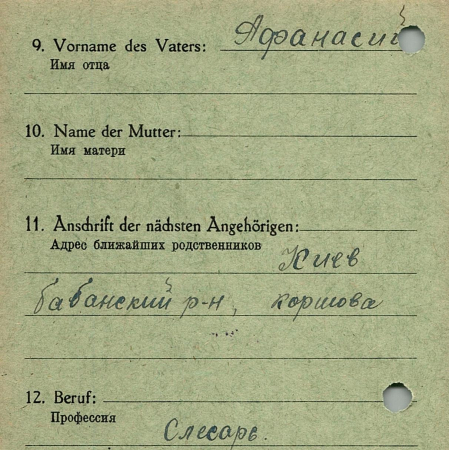 9. Vorname des Vaters: Афанасий
Имя отца
10. Name der Mutter:
Имя матери
11. Anschrift der nächsten Angehörigen:
Адрес ближайших родственников
Киев
бабанский р-н, коршова
12. Beruf:
Профессия
Слесарь.